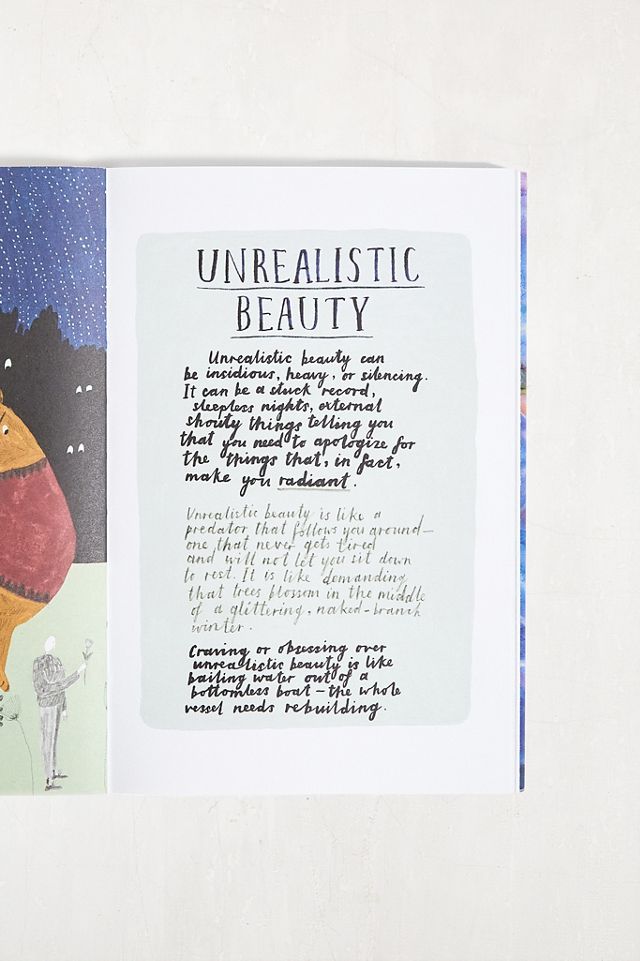 UNREALISTIC
BEAUTY
Unrealistic beauty can
be insidious, heavy, or silencing.
It can be a stuck record,
sleepless nights, external
shouty things telling you
that you need to apologize for
the things that, in fact,
make you radiant.
Unrealistic beauty is like a
predator that follows you around—
one that never gets tired
and will not let you sit down
to rest. It is like demanding
that trees blossom in the middle
of a glittering, naked-branch
winter.
Craving or obsessing over
unrealistic beauty is like
bailing water out of a
bottomless boat — the whole
vessel needs rebuilding.